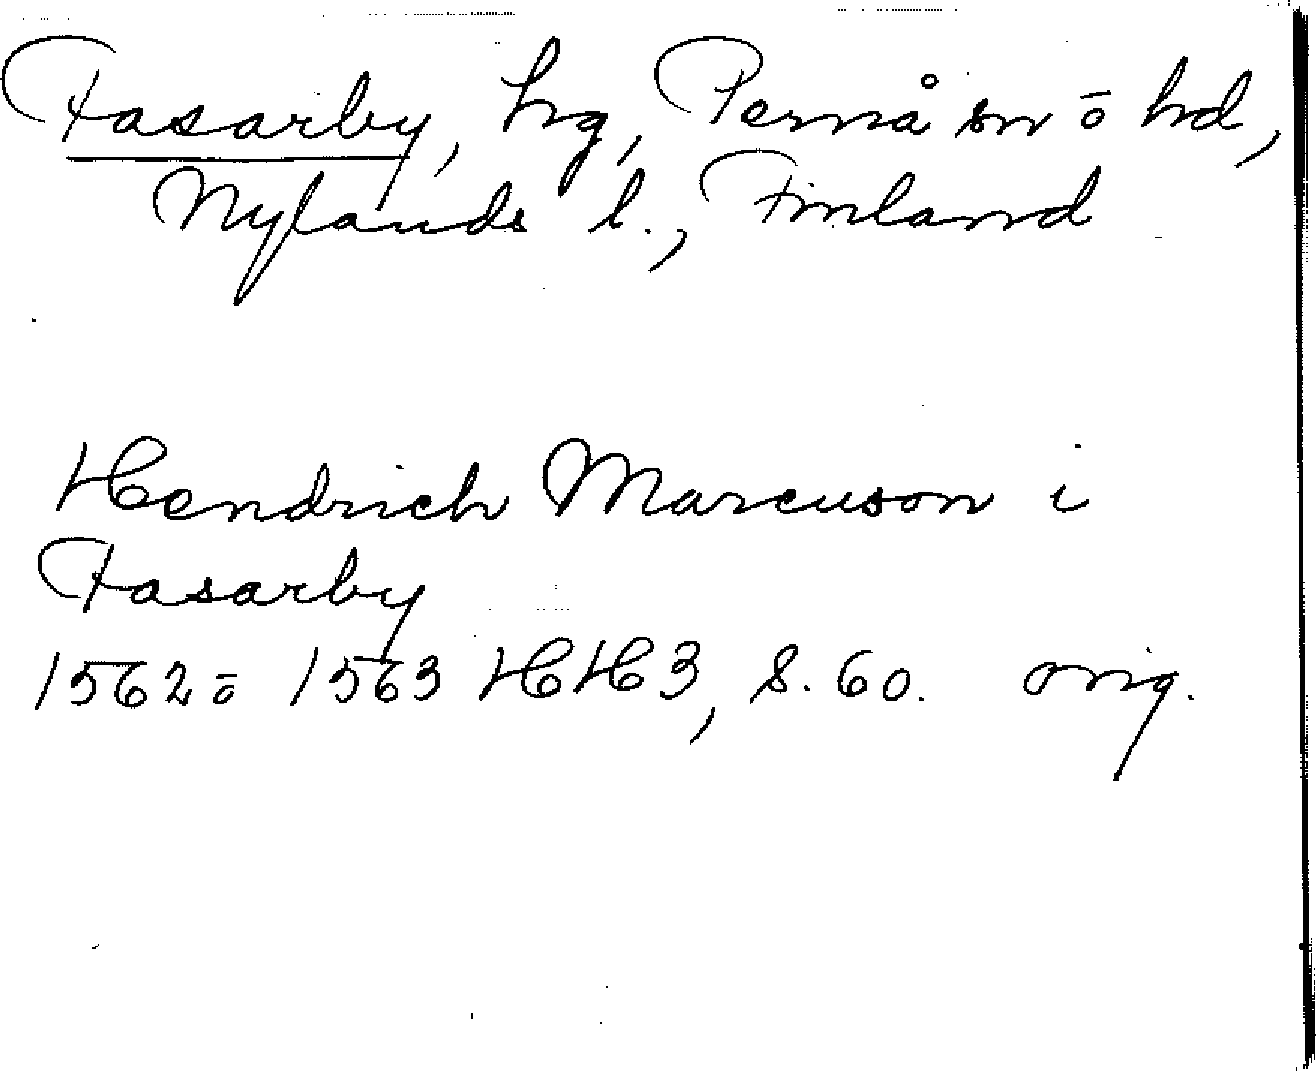 Fasarby, hg, Pernå sn ō hd,
Nylands l., Finland
Hendrich Marcuson i
Fasarby
1562 ō 1563 HH3, S. 60. orig.